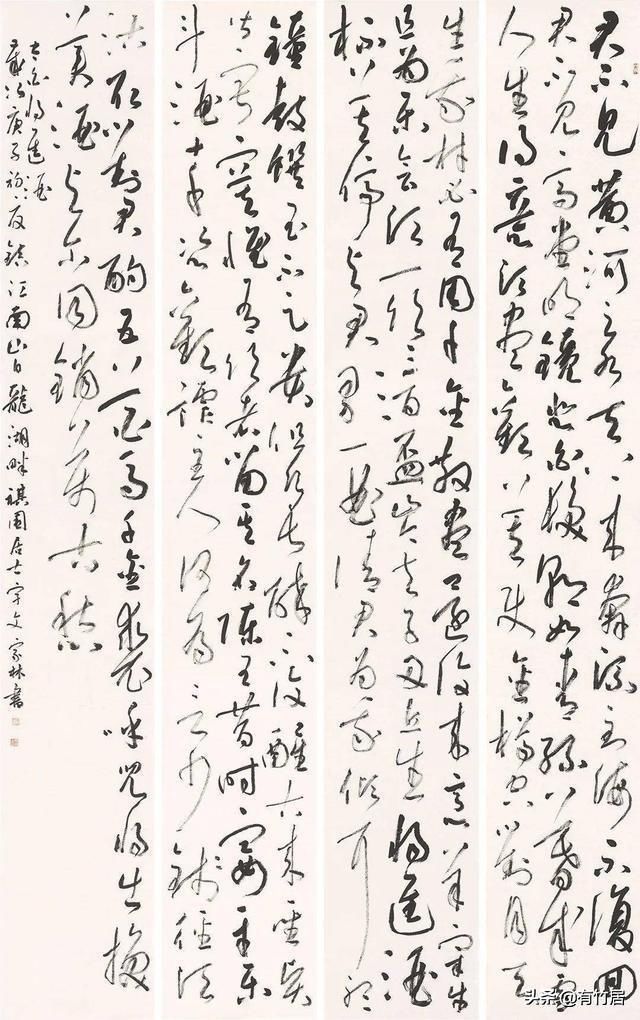 君不見黃河之水天上來奔流到海不復回
君不見高堂明鏡悲白髮朝如青絲暮成雪
人生得意須盡歡莫使金樽空對月天
生我材必有用千金散盡還復來烹羊宰牛
且為樂會須一飲三百杯岑夫子丹丘生將進酒
杯莫停與君歌一曲請君為我側耳聽
鐘鼓饌玉不足貴但願長醉不復醒古來聖賢
皆寂寞惟有飲者留其名陳王昔時宴平樂
斗酒十千恣歡謔主人何為言少錢徑須
沽取對君酌五花馬千金裘呼兒將出換
美酒與爾同銷萬古愁
太白將進酒
歲次庚子初夏鎮江南山白龍湖畔祺園居士宇文家林書
头条@有竹居